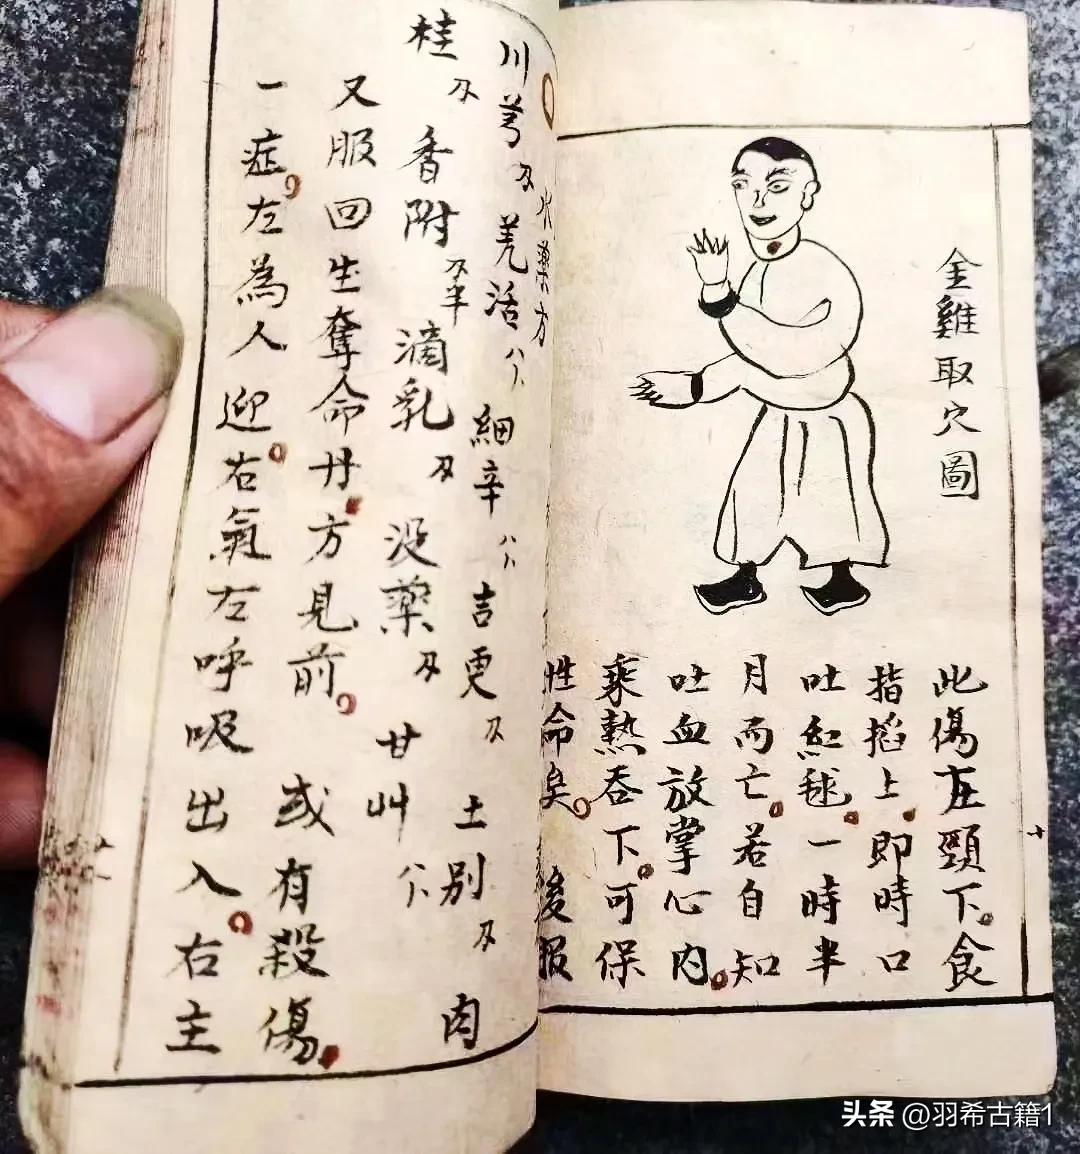 金雞取穴圖
此傷在頸下。食
指掐上。即時口
吐紅毬。一時半
月而亡。若自知
吐血放掌心內。
乘熱吞下。可保
性命矣。後服
水藥方
川芎 羗活 細辛 吉更 土別 肉
桂 香附 半 滴乳 没藥 甘艸
又服回生奪命丹。方見前。或有殺傷。
一症。左為人迎。右氣左呼吸出入。右主
十
头条 @羽希古籍1